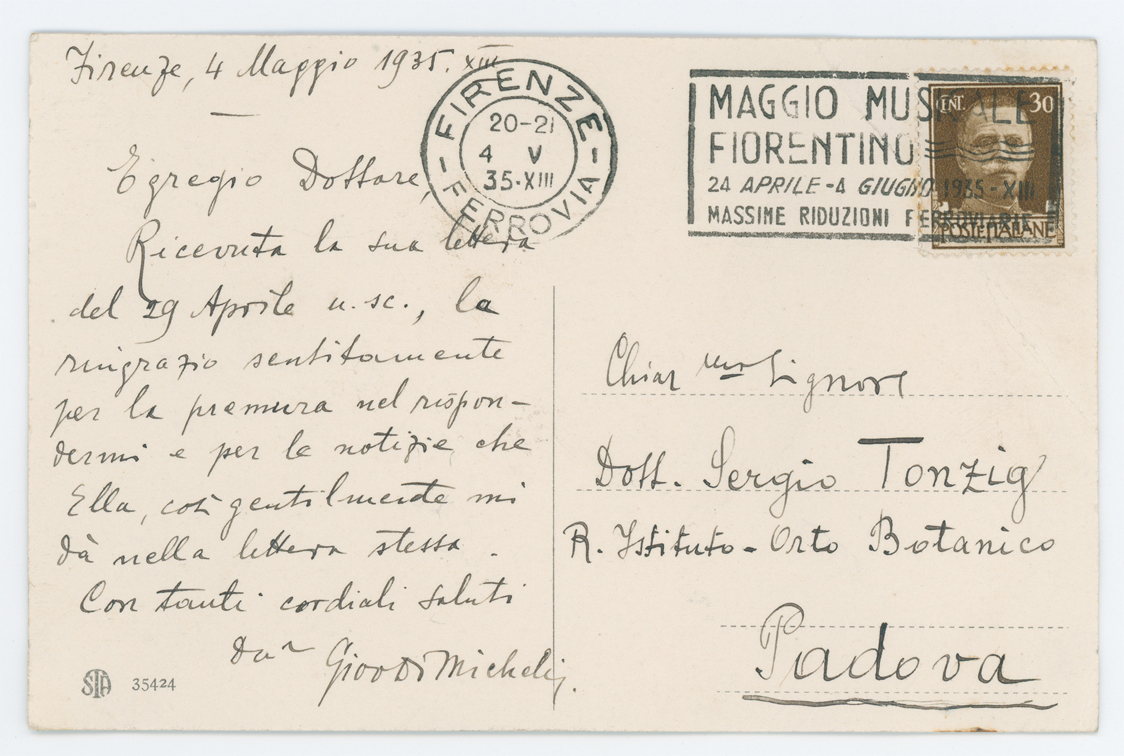 Firenze, 4 Maggio 1935. XIII
Egregio Dottore,
Ricevuta la sua lettera
del 29 Aprile u. sc., la
ringrazio sentitamente
per la premura nel rispon-
dermi e per le notizie che
Ella, così gentilmente mi
dà nella lettera stessa.
Con tanti cordiali saluti
Giov Di Micheli
STA 35424
FIRENZE
20-21
4 V
35·XIII
FERROVIA
MAGGIO MUSICALE
FIORENTINO
24 APRILE - 4 GIUGNO 1935 - XIII
MASSIME RIDUZIONI FERROVIARIE
CENT. 30
POSTE ITALIANE
Chiar mo Signore
Dott. Sergio Tonzig
R. Istituto - Orto Botanico
Padova